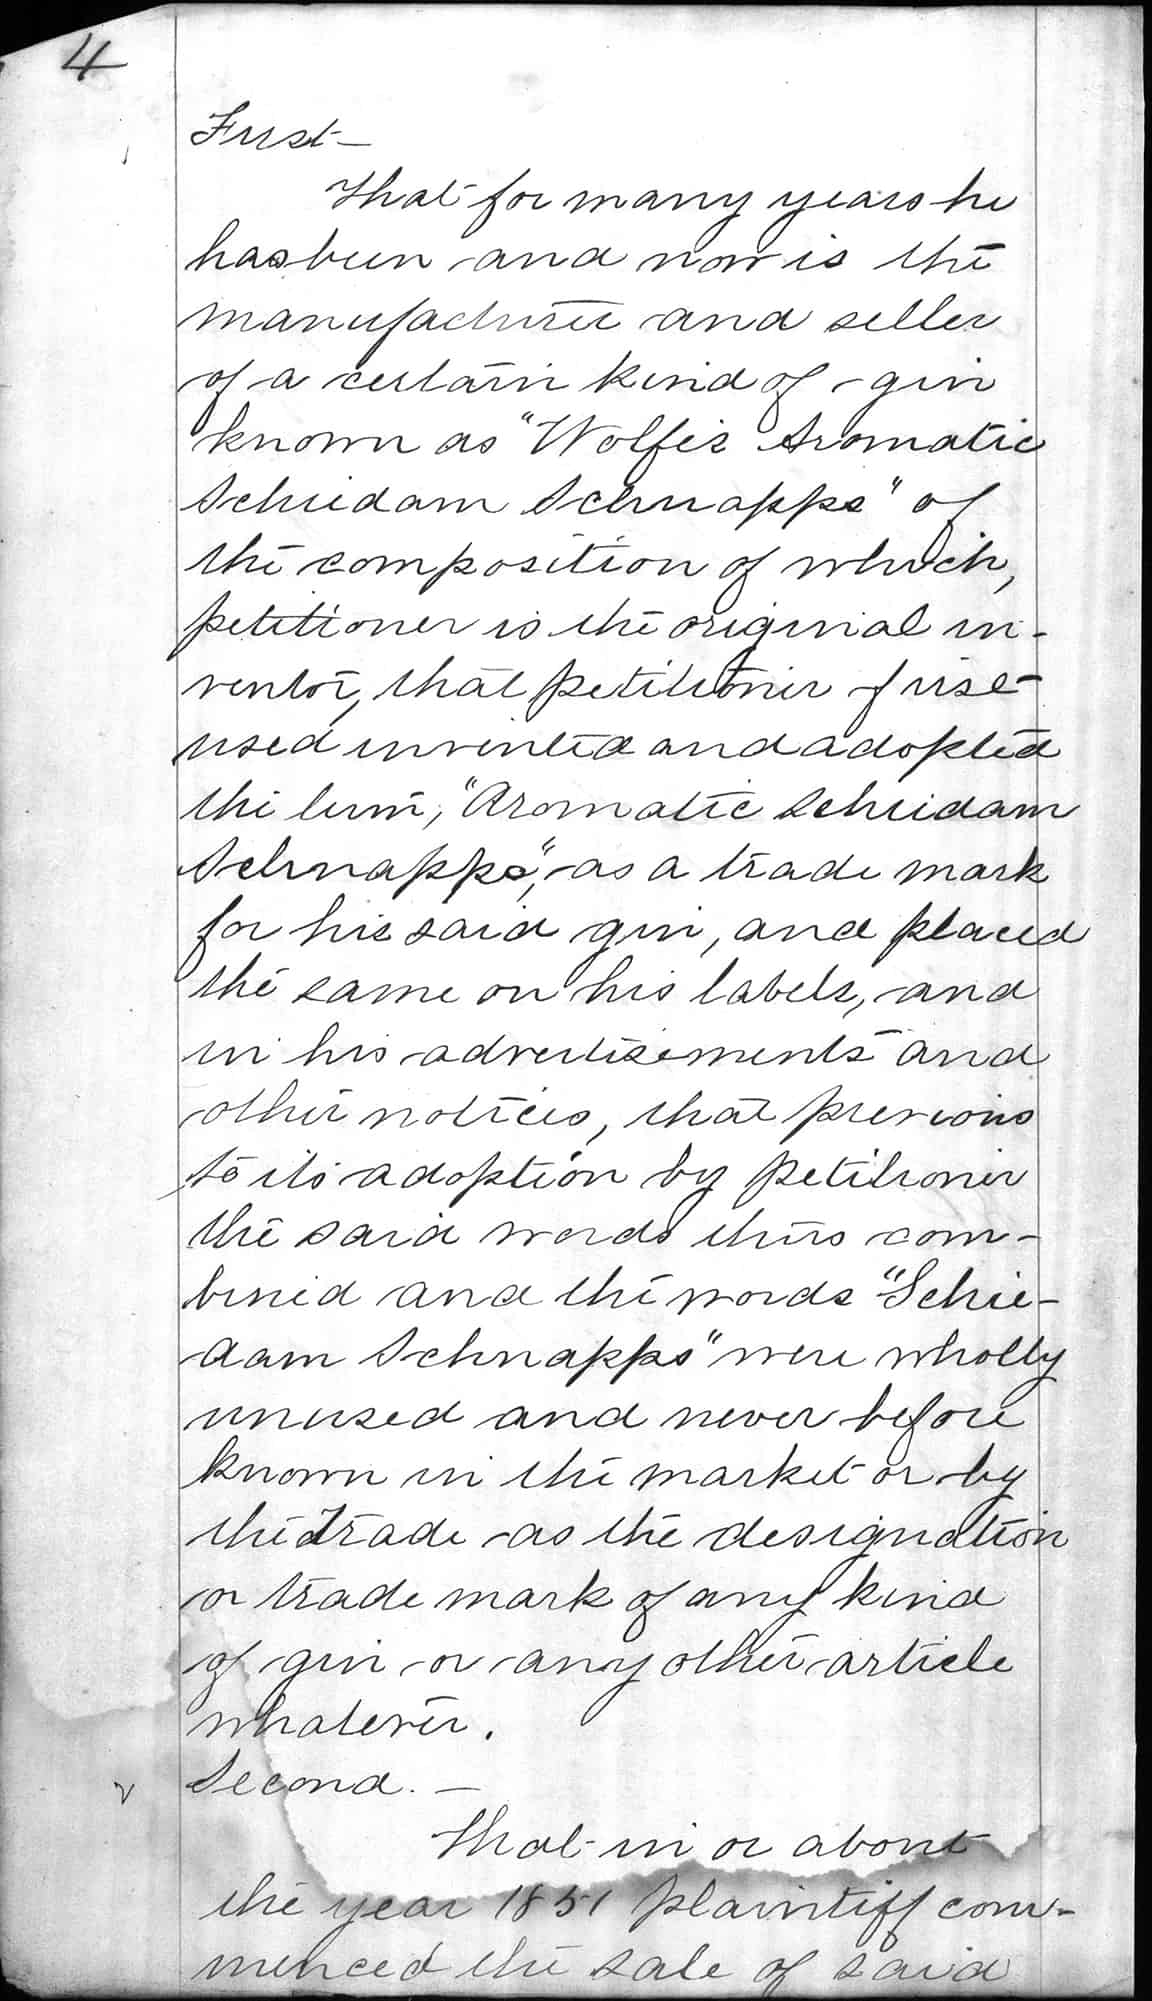 4
First —
That for many years he
has been and now is the
manufacturer and seller
of a certain kind of gin
known as "Wolfe's Aromatic
Schiedam Schnapps" of
the composition of which,
petitioner is the original in-
ventor, that petitioner first
used invented and adopted
the term, "Aromatic Schiedam
Schnapps", as a trade mark
for his said gin, and placed
the same on his labels, and
in his advertisements and
other notices, that previous
to its adoption by petitioner
the said words thus com-
bined and the words "Schie-
dam Schnapps" were wholly
unused and never before
known in the market or by
the trade as the designation
or trade mark of any kind
of gin or any other article
whatever.
Second. —
That in or about
the year 1851 plaintiff com-
menced the sale of said